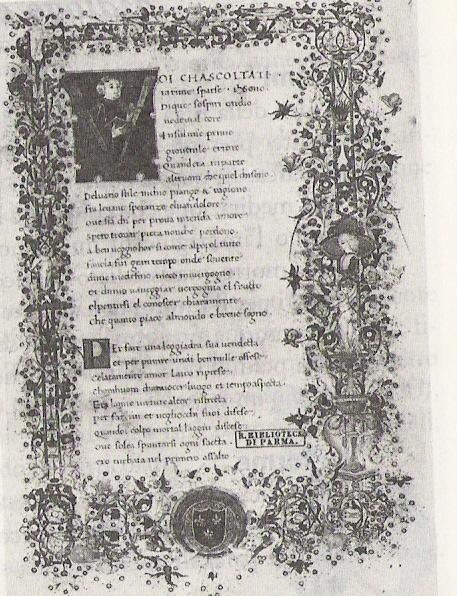 OI CHASCOLTATI
in rime sparse il suono
Di que sospiri ondio
nodriua il core
In sul mio primo
giouenile errore
Quandera in parte
altruom da quel chisono.
Deluario stile inchio piango & ragiono
fra leuane speranze euandolore
oue sia chi per proua intenda amore
spero trouar pieta nonche perdono.
a ben ueggio hor si come alpopol tutto
fauola fui gran tempo onde souente
dime medesmo meco miuergogno.
et dimio uaneggiar uergogna el frutto
elpentirsi el conoscer chiaramente
Che quanto piace almondo e breue sogno.
PEr fare una leggiadra sua uendetta
et per punire undi ben mille offese
celatamente amor larco riprese
chomhuom chanuocer luogo et tempo aspecta.
Era lamia uirtute alcor ristretta
per far iui et negliocchi suoi difese
quandol colpo mortal laggiu discese
oue solea spuntarsi ogni saetta.
ero turbata nel primero assalto
R. BIBLIOTECA
DI PARMA.